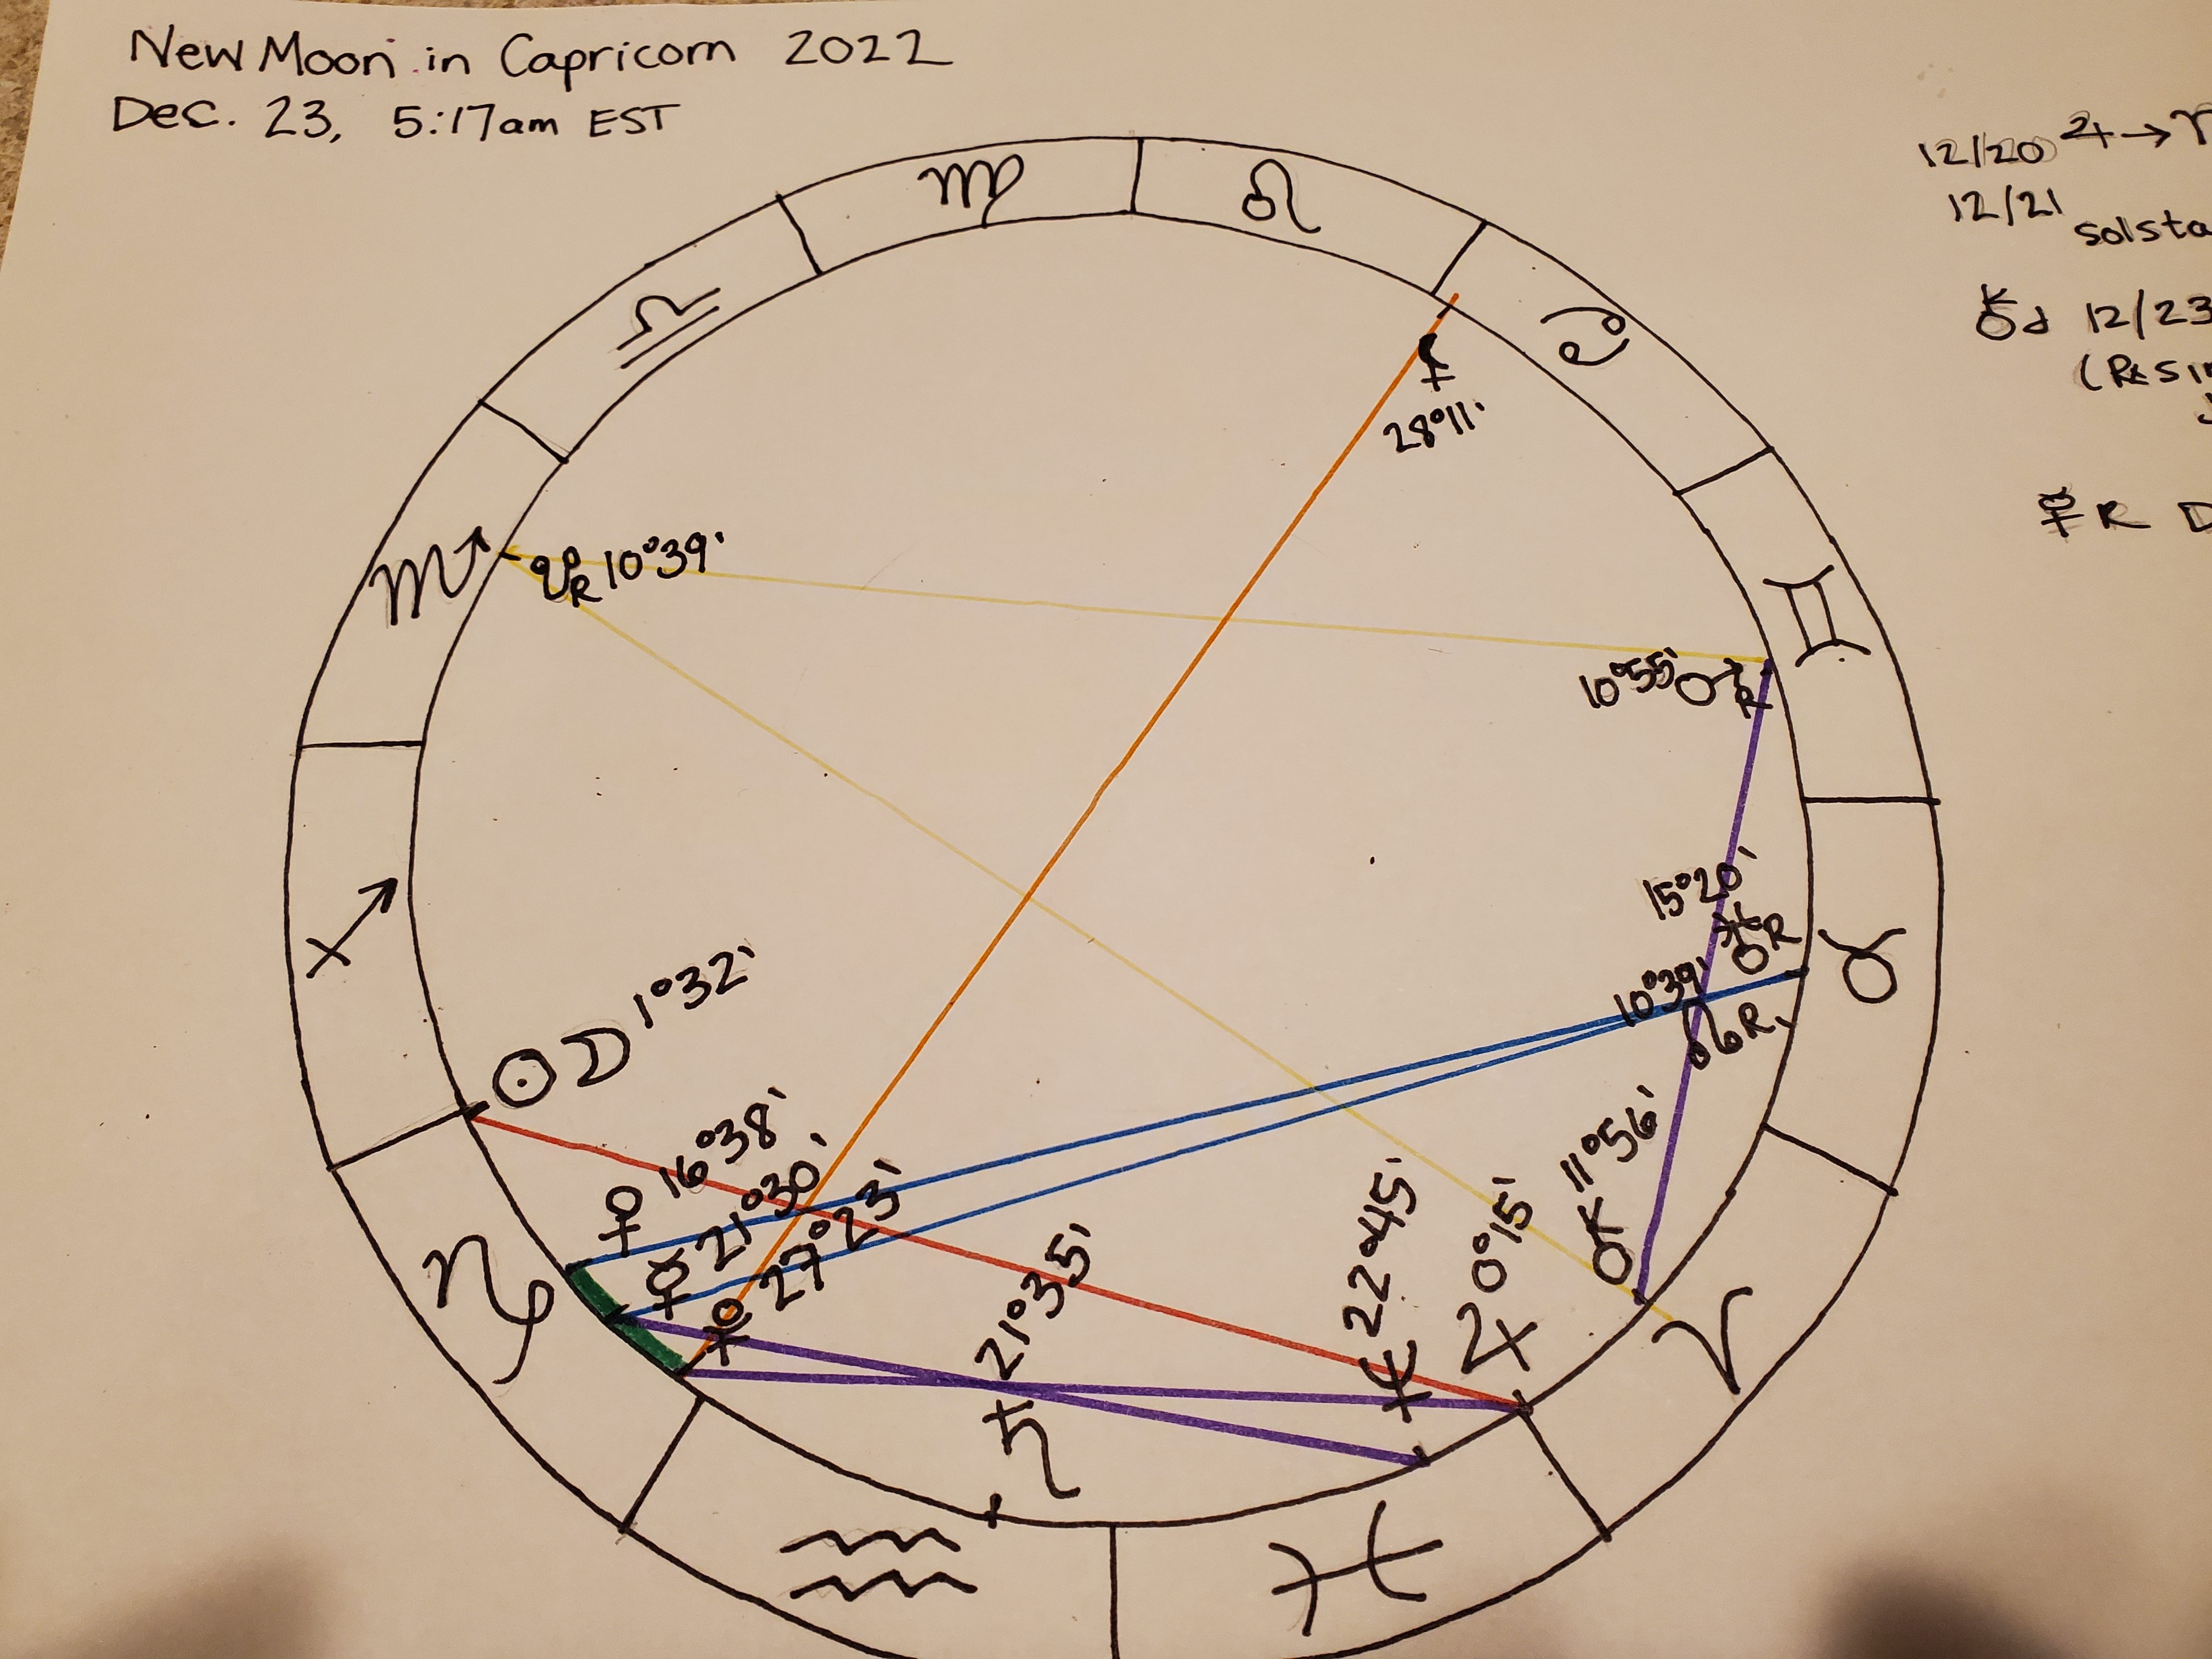 New Moon in Capricorn 2022
Dec. 23, 5:17am EST
12/20 ♃→♈
12/21
⚷ d 12/23
☿ R
♍
♌
♎
♋
⚸
28°11'
♏
☋R 10°39'
♊
10°55' ♂R
♐
15°20'
♅R
♉
10°39'
☊R
☉☽ 1°32'
♀ 16°38'
☿ 21°30'
♇ 27°23'
♄ 21°35'
♆ 22°45'
♃ 0°15'
⚷ 11°56'
♑
♈
♒
♓